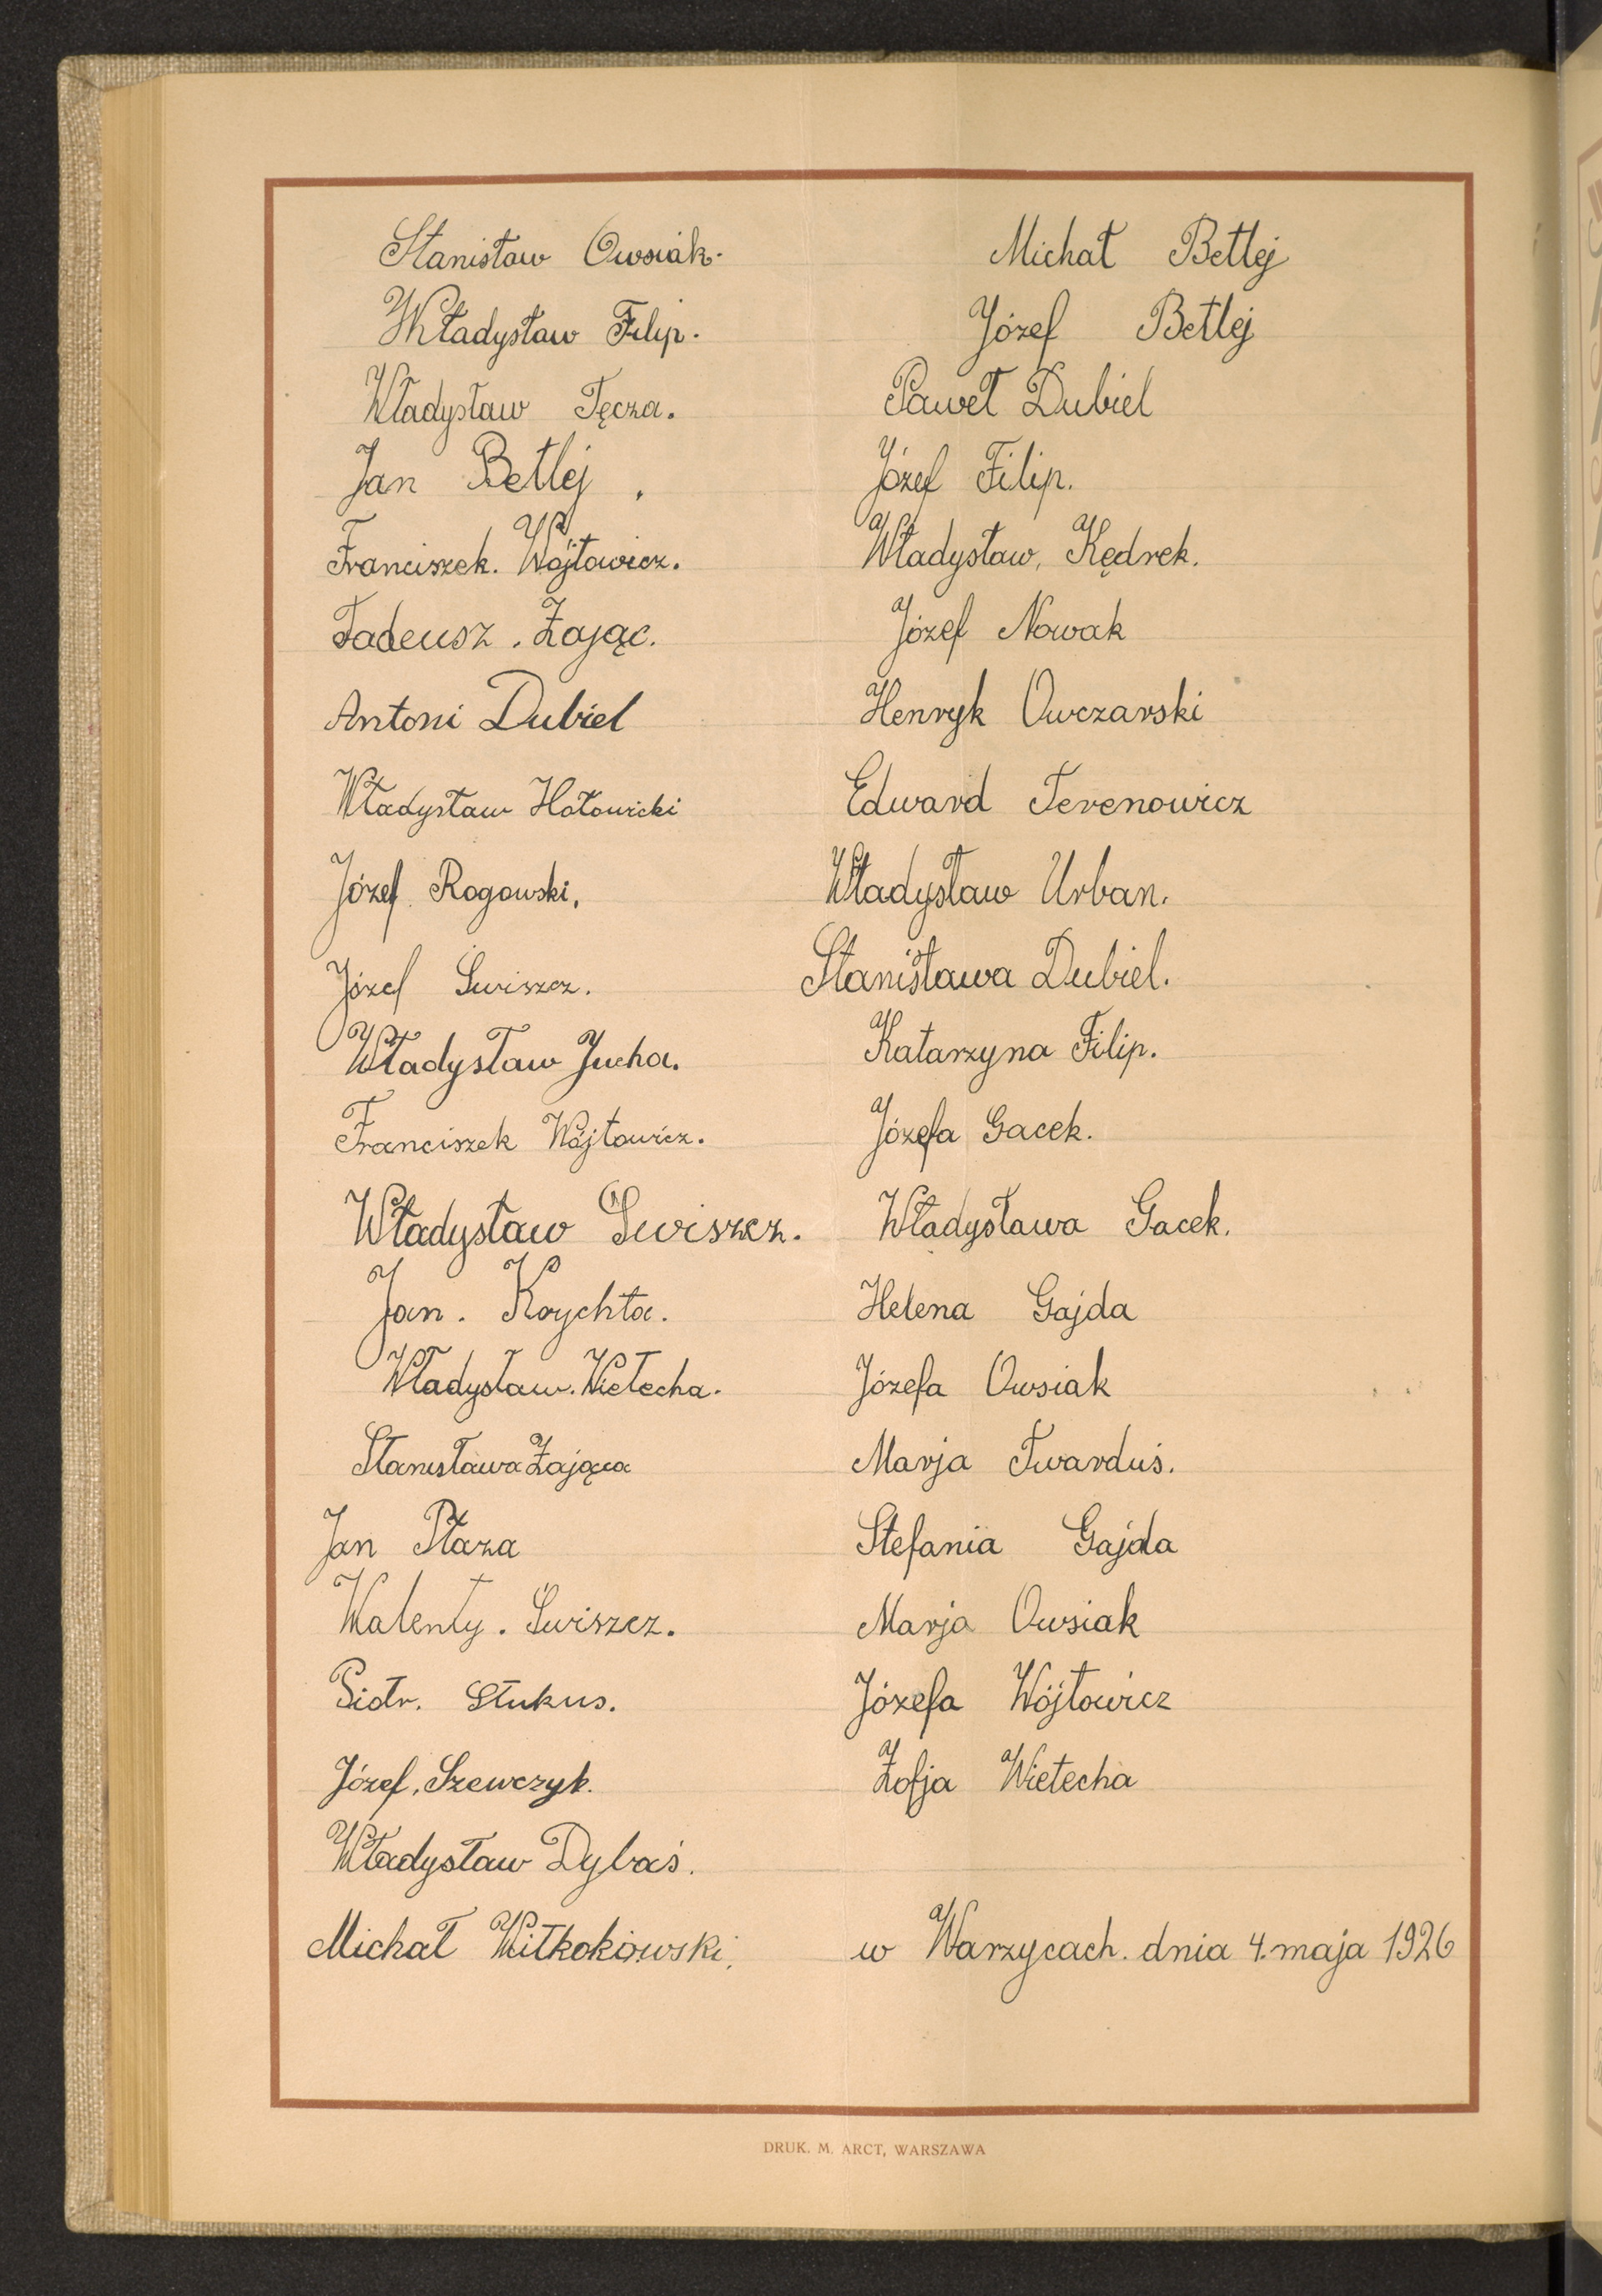 Stanisław Owsiak.
Władysław Filip.
Władysław Tęcza.
Jan Betlej.
Franciszek. Wójtowicz.
Tadeusz. Zając.
Antoni Dubiel
Władysław Hołowicki
Józef Rogowski.
Józef Świszcz.
Władysław Jucha.
Franciszek Wójtowicz.
Władysław Świszcz.
Jan. Krychta.
Władysław. Wietecha.
Stanisława Zająca
Jan Płaza
Walenty. Świszcz.
Piotr. Stukus.
Józef. Szewczyk.
Władysław Dybaś.
Michał Witkokowski.
Michał Betlej
Józef Betlej
Paweł Dubiel
Józef Filip.
Władysław, Kędrek.
Józef Nowak
Henryk Owczarski
Edward Terenowicz
Władysław Urban.
Stanisława Dubiel.
Katarzyna Filip.
Józefa Gacek.
Władysława Gacek.
Helena Gajda
Józefa Owsiak
Marja Twarduś.
Stefania Gajda
Marja Owsiak
Józefa Wójtowicz
Zofja Wietecha
w Warzycach. dnia 4. maja 1926
DRUK. M. ARCT, WARSZAWA